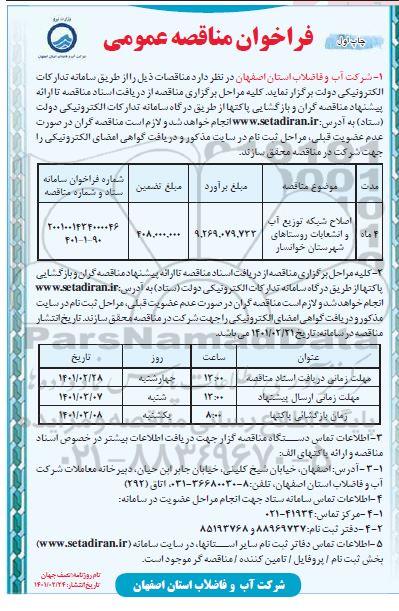 وزارت نیرو
شرکت آب و فاضلاب استان اصفهان
چاپ اول
فراخوان مناقصه عمومی
۱- شرکت آب و فاضلاب استان اصفهان در نظر دارد مناقصات ذیل را از طریق سامانه تدارکات
الکترونیکی دولت برگزار نماید. کلیه مراحل برگزاری مناقصه از دریافت اسناد مناقصه تا ارائه
پیشنهاد مناقصه گران و بازگشایی پاکتها از طریق درگاه سامانه تدارکات الکترونیکی دولت
(ستاد) به آدرس: www.setadiran.ir انجام خواهد شد و لازم است مناقصه گران در صورت
عدم عضویت قبلی، مراحل ثبت نام در سایت مذکور و دریافت گواهی امضای الکترونیکی را
جهت شرکت در مناقصه محقق سازند.
مدت موضوع مناقصه مبلغ برآورد مبلغ تضمین شماره فراخوان سامانه ستاد و شماره مناقصه
۴ ماه اصلاح شبکه توزیع آب و انشعابات روستاهای شهرستان خوانسار ۹.۲۶۹.۰۷۹.۷۲۳ ۴۰۸.۰۰۰.۰۰۰ ۲۰۰۱۰۰۱۴۳۴۰۰۰۰۴۶ ۴۰۱-۱-۹۰
۲- کلیه مراحل برگزاری مناقصه از دریافت اسناد مناقصه تا ارائه پیشنهاد مناقصه گران و بازگشایی
پاکتها از طریق درگاه سامانه تدارکات الکترونیکی دولت (ستاد) به آدرس: www.setadiran.ir
انجام خواهد شد و لازم است مناقصه گران در صورت عدم عضویت قبلی، مراحل ثبت نام در سایت
مذکور و دریافت گواهی امضای الکترونیکی را جهت شرکت در مناقصه محقق سازند. تاریخ انتشار
مناقصه در سامانه: تاریخ ۱۴۰۱/۰۲/۲۱ می باشد.
عنوان ساعت روز تاریخ
مهلت زمانی دریافت اسناد مناقصه ۱۳:۰۰ چهارشنبه ۱۴۰۱/۰۲/۲۸
مهلت زمانی ارسال پیشنهاد ۱۳:۰۰ شنبه ۱۴۰۱/۰۳/۰۷
زمان بازگشائی پاکتها ۸:۰۰ یکشنبه ۱۴۰۱/۰۳/۰۸
۳- اطلاعات تماس دستگاه مناقصه گزار جهت دریافت اطلاعات بیشتر در خصوص اسناد
مناقصه و ارائه پاکتهای الف:
۳-۱- آدرس: اصفهان، خیابان شیخ کلینی، خیابان جابر ابن حیان، دبیرخانه معاملات شرکت
آب و فاضلاب استان اصفهان، تلفن: ۸-۳۶۶۸۰۰۳۰-۰۳۱، اتاق (۲۹۲)
۴- اطلاعات تماس سامانه ستاد جهت انجام مراحل عضویت در سامانه:
۴-۱- مرکز تماس: ۴۱۹۳۴-۰۲۱
۴-۲- دفتر ثبت نام: ۸۸۹۶۹۷۳۷ و ۸۵۱۹۳۷۶۸
۵- اطلاعات تماس دفاتر ثبت نام سایر استانها، در سایت سامانه (www.setadiran.ir)
بخش ثبت نام / پروفایل / تامین کننده / مناقصه گر موجود است.
نام روزنامه: نصف جهان
تاریخ انتشار: ۱۴۰۱/۰۲/۲۴
شرکت آب و فاضلاب استان اصفهان